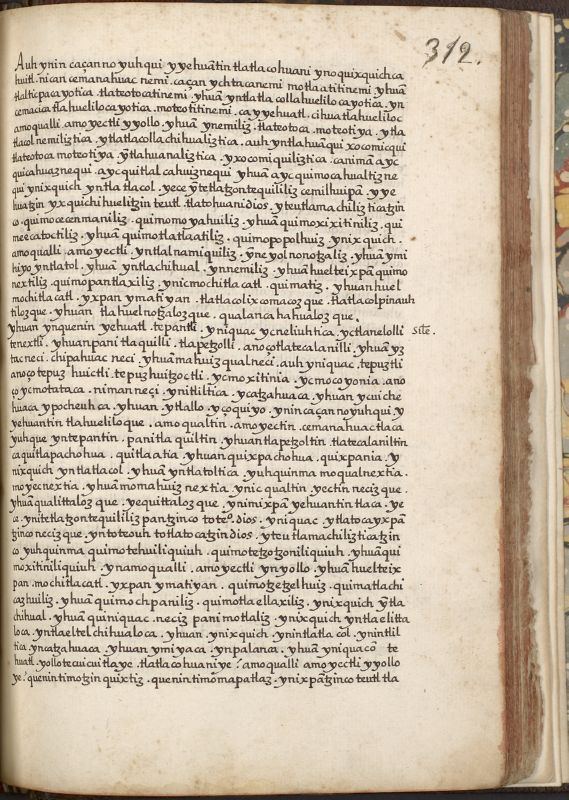 312.
Auh ynin caçan no yuhqui yyehuãtin tlatlacohuani ynoquixquichca
huitl. nican cemanahuac nemi. caçan ychtacanemi motlaatitinemi yhuã
tlalticpacayotica. tlateotocatinemi. yhuã yntlatlacollahuelilocayotica. yn
cemacica tlahuelilocayotica. moteotitinemi. ca yyehuatl. cihuatlahueliloc
amoqualli. amo yectli yyollo. yhuã ynemiliz. tlateotoca. moteotiya. ytla
tlacolnemiliztica. ytlatlacollachihualiztica. auh yntlahuãqui xocomicqui
tlateotoca moteotiya ỹtlahuanaliztica. yxocomiquiliztica. canimã ayc
quicahuaznequi. ayc quitlalcahuiznequi yhuã ayc quimocahualtizne
qui ynixquich yntlatlacol. yece ỹtetlatzontequililiz cemilhuipã. yye
huatzin yxquichihuelitzin teutl. tlatohuani dios. yteutlamachiliztica tzin
co. quimocecenmaniliz. quimomoyahuiliz. yhuã quimoxixitiniliz. qui
meecatoctiliz. yhuã quimotlatlaatiliz. quimopopolhuiz. ynixquich.
amoqualli. amo yectli. yntlalnamiquiliz. yneyolnonotzaliz. yhuã ymi
hiyo yntlatol. yhuã yntlachihual. ynnemiliz. yhuã huelteixpã quimo
nextiliz. quimopantlaxiliz. ynicmochitlacatl. quimatiz. yhuan huel
mochitlacatl. yxpan ymatiyan. tlatlacolixcomacozque. tlatlacolpinauh
tilozque. yhuan tlahuelnotzalozque. qualancahahualozque.
yhuan ynquenin yehuatl. tepantli. yniquac ycneliuhtica. yctlanelolli site.
tenextli. yhuan panitlaquilli. tlapetzolli. anoçotlatecalanilli. yhuã yz
tac neci. chipahuac neci. yhuã mahuizqualneci. auh yniquac. tepuztli
anoço tepuz huictli. tepuzhuitzoctli. ycmoxitinia. ycmocoyonia. ano
ço ycmotataca. niman neçi. ynitliltica. ycatzahuaca. yhuan ycuiche
huaca ypocheuhca. yhuan. ytlallo. yçoquiyo. ynin caçan no yuhqui y
yehuantin tlahueliloque. amo qualtin. amo yectin. cemanahuactlaca
yuhque yntepantin. panitlaquiltin. yhuan tlapetzoltin. tlatecalaniltin
caquitlapachohua. quitlaatia. yhuan quixpachohua. quixpania. y
nixquich yntlatlacol. yhuã yntlatoltica. yuhquinma moqualnextia.
moyecnextia. yhuã momahuiznextia. ynic qualtin. yectin necizque.
yhuã qualittalozque. yequittalozque. ynimixpã yehuantin tlaca. ye
ce. ynitetlatzontequililizpantzinco totecº. dios. yniquac. ytlatocayxpã
tzinco necizque. ynto teouh totlatocatzin dios. yteutlamachiliztica tzin
co yuhquinma quimotehuiliquiuh. quimotetzotzoniliquiuh. yhuãqui
moxitiniliquiuh. ynamoqualli. amo yectli ynyollo. yhuã huelteix
pan. mochitlacatl. yxpan ymatiyan. quimotzetzelhuiz. quimatlachi
cazhuiliz. yhuã quimochpaniliz. quimotlaellaxiliz. ynixquich ỹtla
chihual. yhuã quiniquac. neciz panimotlaliz. ynixquich yntlaelitta
loca. yntlaeltelchihualoca. yhuan. ynixquich ynintlatlacol. ynintlil
tica. yncatzahuaca. yhuan ymiyaca. ynpalanca. yhuã yniquacõ te
huatl. yollotecuicuitlaye. tlatlacohuaniye? amoqualli amo yecctli yyollo
ye? quenintimotzinquixtiz. quenintimõmapatlaz. ynixpãtzinco teutl tla